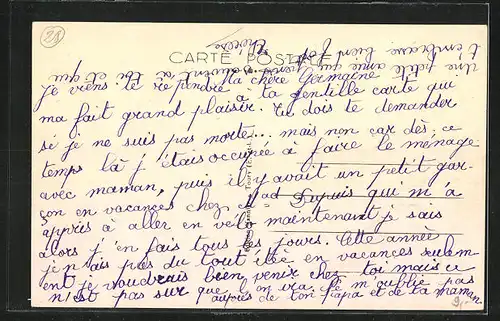 CARTE POSTALE
Ma chère Germaine
Je viens te répondre à ta gentille carte qui
m'a fait grand plaisir. Tu dois te demander
si je ne suis pas morte... mais non car dès, ce
temps là j'étais occupée à faire le ménage
avec maman, puis il y avait un petit gar-
çon en vacances chez Depuis qui m'a
appris à aller en vélo maintenant je sais
alors j'en fais tous les jours. Cette année
je n'ais pas du tout été en vacances seulem-
ent je voudrais bien venir chez toi mais ce
n'est pas sur que l'on ira. Je m'oublie pas
auprès de ton Papa et de ta maman.
Une petite amie qui
t'embrasse bien fort
Thérèse